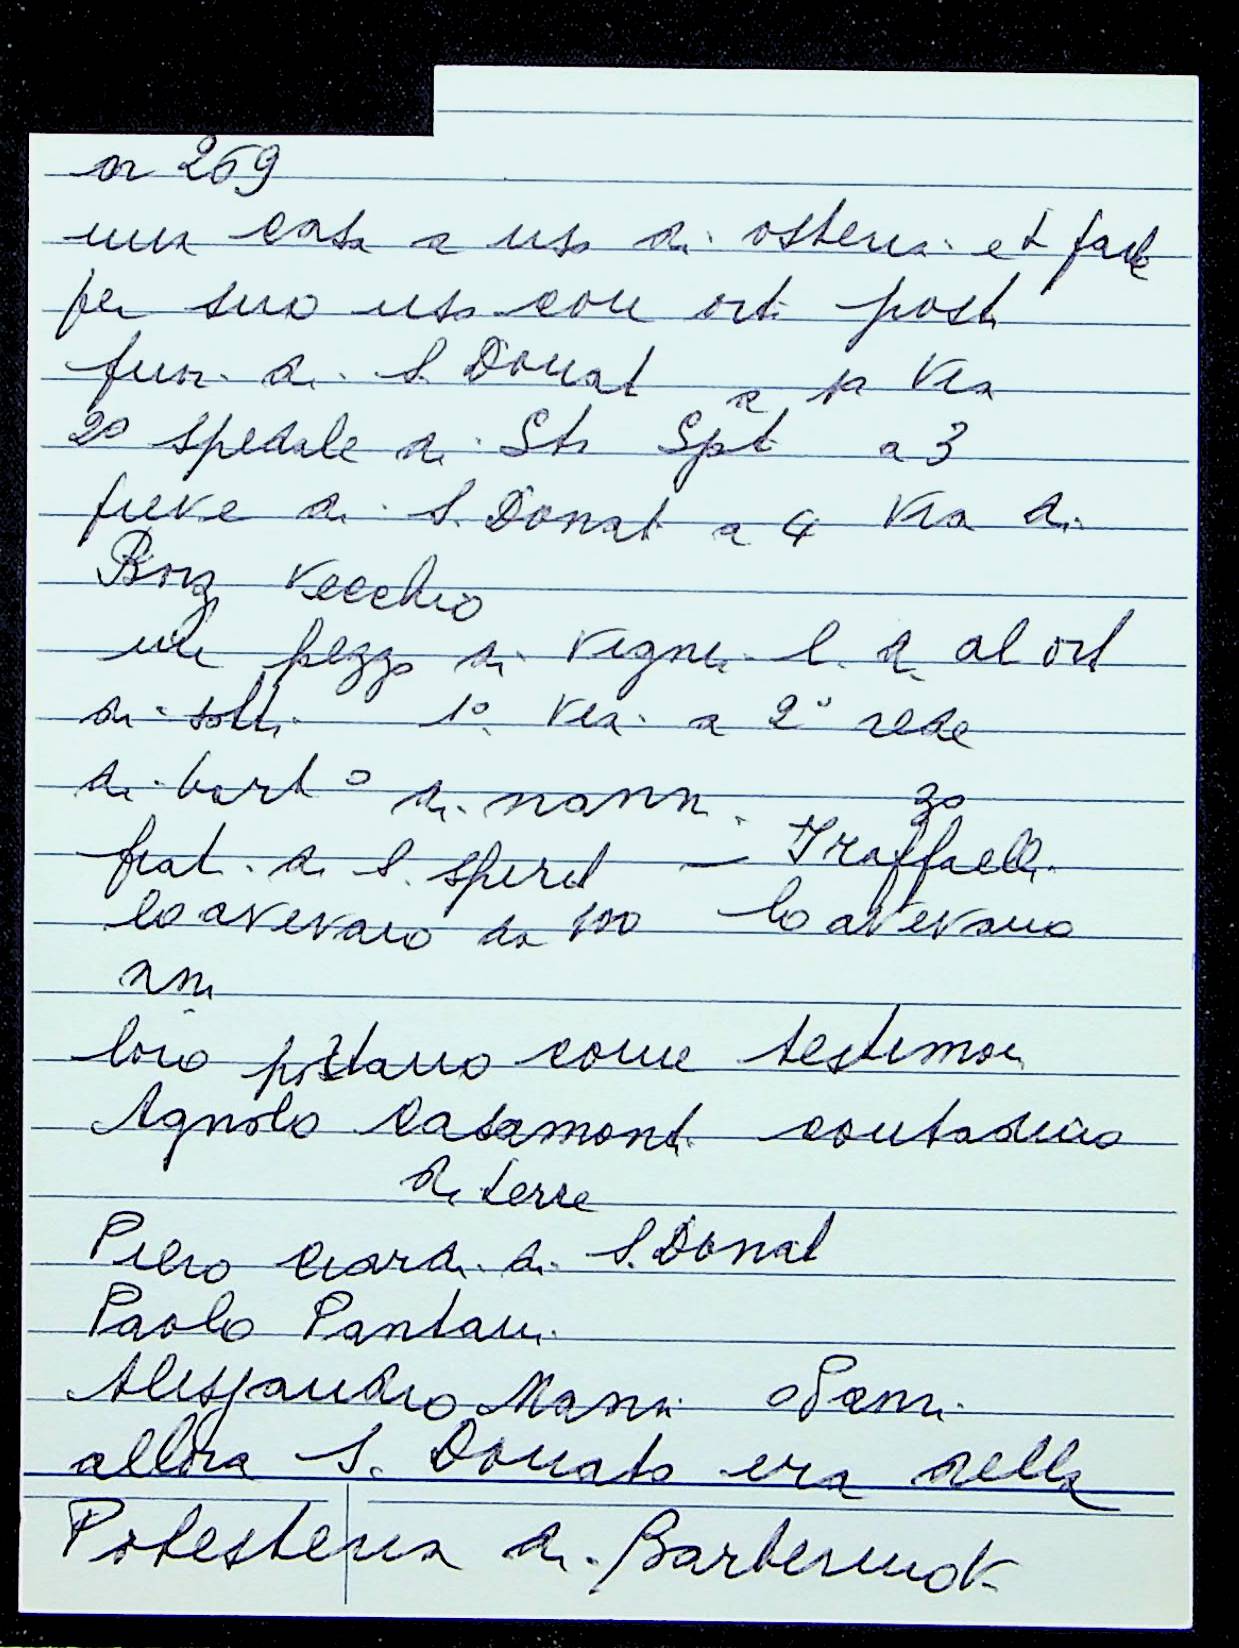 nr 269
una casa a uso di osteria et fatte
per suo uso con orti posti
fuor. di. S. Donat a 1a via
2o spedale di Sto Spt a 3
pieve di. S. Donat a 4 via di
Borg Vecchio
un pezzo di vigna l. d. al ort
di sotti 1o via. a 2o rede
di. bart o di. nanni. 3o
frat. di S. spirit – Iraffaelli.
lo avevano da 100 lo avevano
anni
loro portano come testimoni
Agnolo Casamonti contadino
di terre
Piero Ciardi. di. S. Donat
Paolo Pantani.
Alessandro Nanni o Vanni.
allora S. Donato era nella
Potesteria di. Barberinot